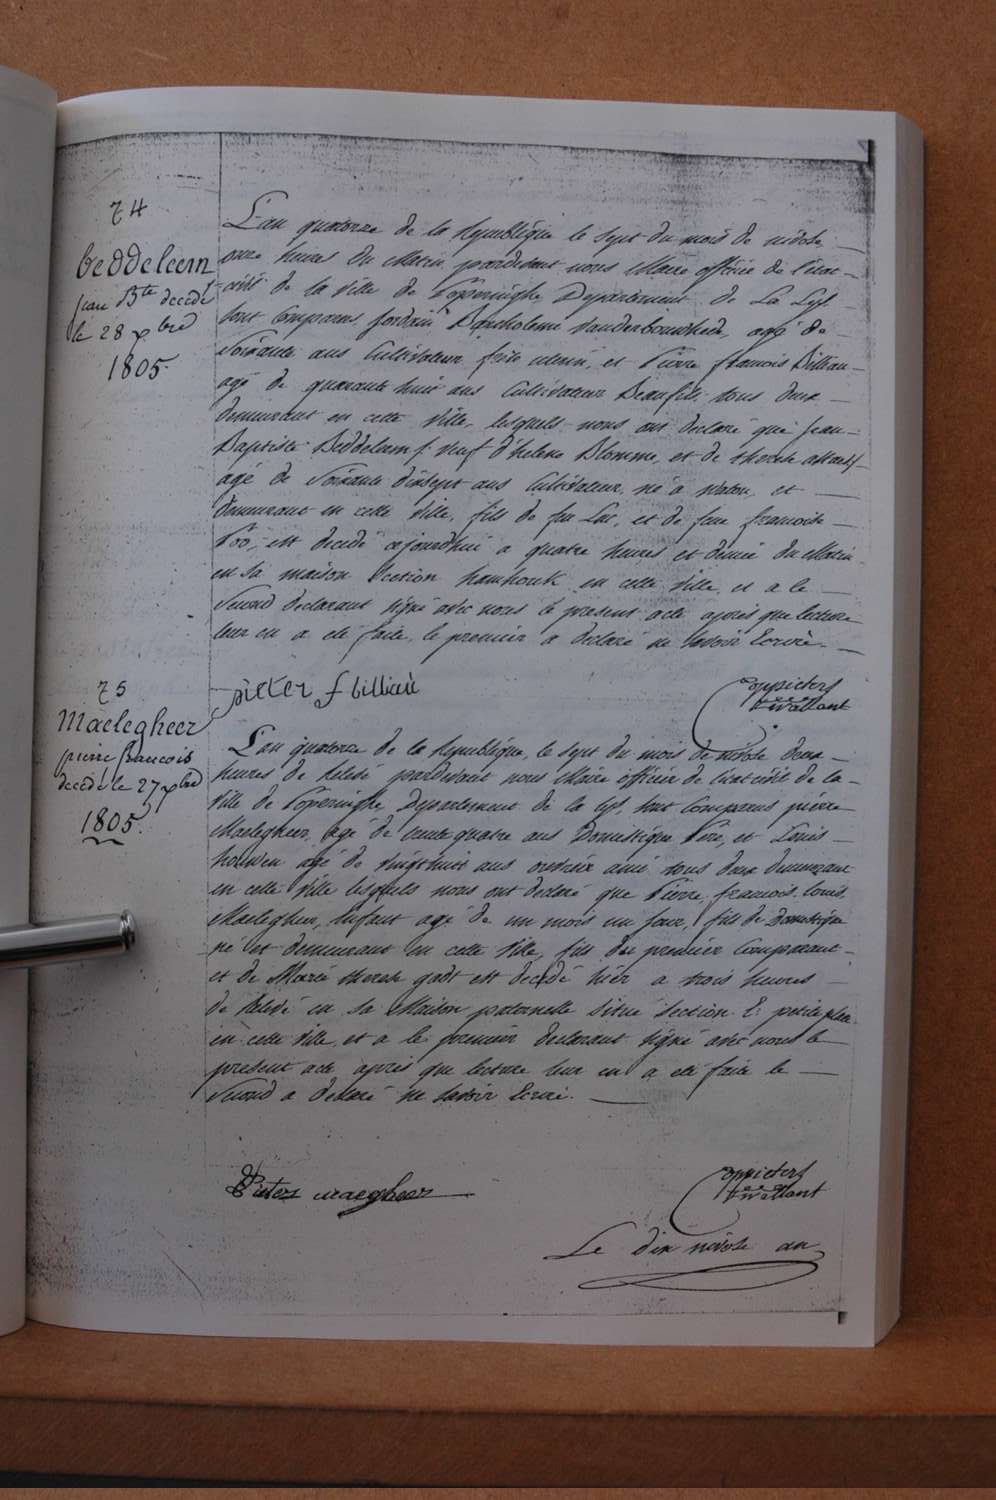 74
beddeleem
jean Bte decedé
le 28 xbre
1805.
L'an quatorze de la Republique le sept du mois de nivôse
onze heures du Matin pardevant nous Maire officier de l'état
civil de la ville de Poperinghe Departement de La Lys
sont comparus Jordain Bartholomé Vanderbouwhede, agé de
Soixante ans Cultivateur frère uterin, et Pierre francois Billiau
agé de quarante huit ans Cultivateur Beaufils tous deux
demeurant en cette Ville, lesquels nous ont declaré que Jean
Baptiste Beddeleem f. veuf d'helene Blomme, et de therese
agé de Soixante dixsept ans Cultivateur, né a Watou, et
demeurant en cette Ville, fils de feu Luc, et de feue francoise
Poo, est decedé cejourdhui a quatre heures et demie du Matin
en sa maison Section hamhouk en cette Ville, et a le
Second declarant signé avec nous le present acte après que lecture
leur en a eté faite, le premier a declaré ne savoir Ecrire.
pieter f billiau
Coppieters
t'wallant
75
Maelegheer
pierre francois
decedé le 27 xbre
1805.
L'an quatorze de la Republique, le sept du mois de nivôse deux
heures de relevé pardevant nous Maire officier de l'etat civil de la
Ville de Poperinghe Departement de la Lys, sont Comparus pierre
Maelegheer, agé de trente quatre ans Domestique Père, et Louis
houwen agé de Vingthuit ans ami tous deux demeurant
en cette Ville lesquels nous ont declaré que Pierre francois Louis
Maelegheer, enfant agé de un mois un jour, fils de Domestique
né et demeurant en cette Ville, fils du premier Comparant
et de Marie therese gadt est decedé hier a trois heures
de Relevé en sa Maison paternelle situé Section E petite place
en cette Ville, et a le premier declarant signé avec nous le
present acte après que lecture leur en a eté faite le
Second a declaré ne savoir Ecrire.
Pieter maegheer
Coppieters
t'wallant
Le dix nivôse an